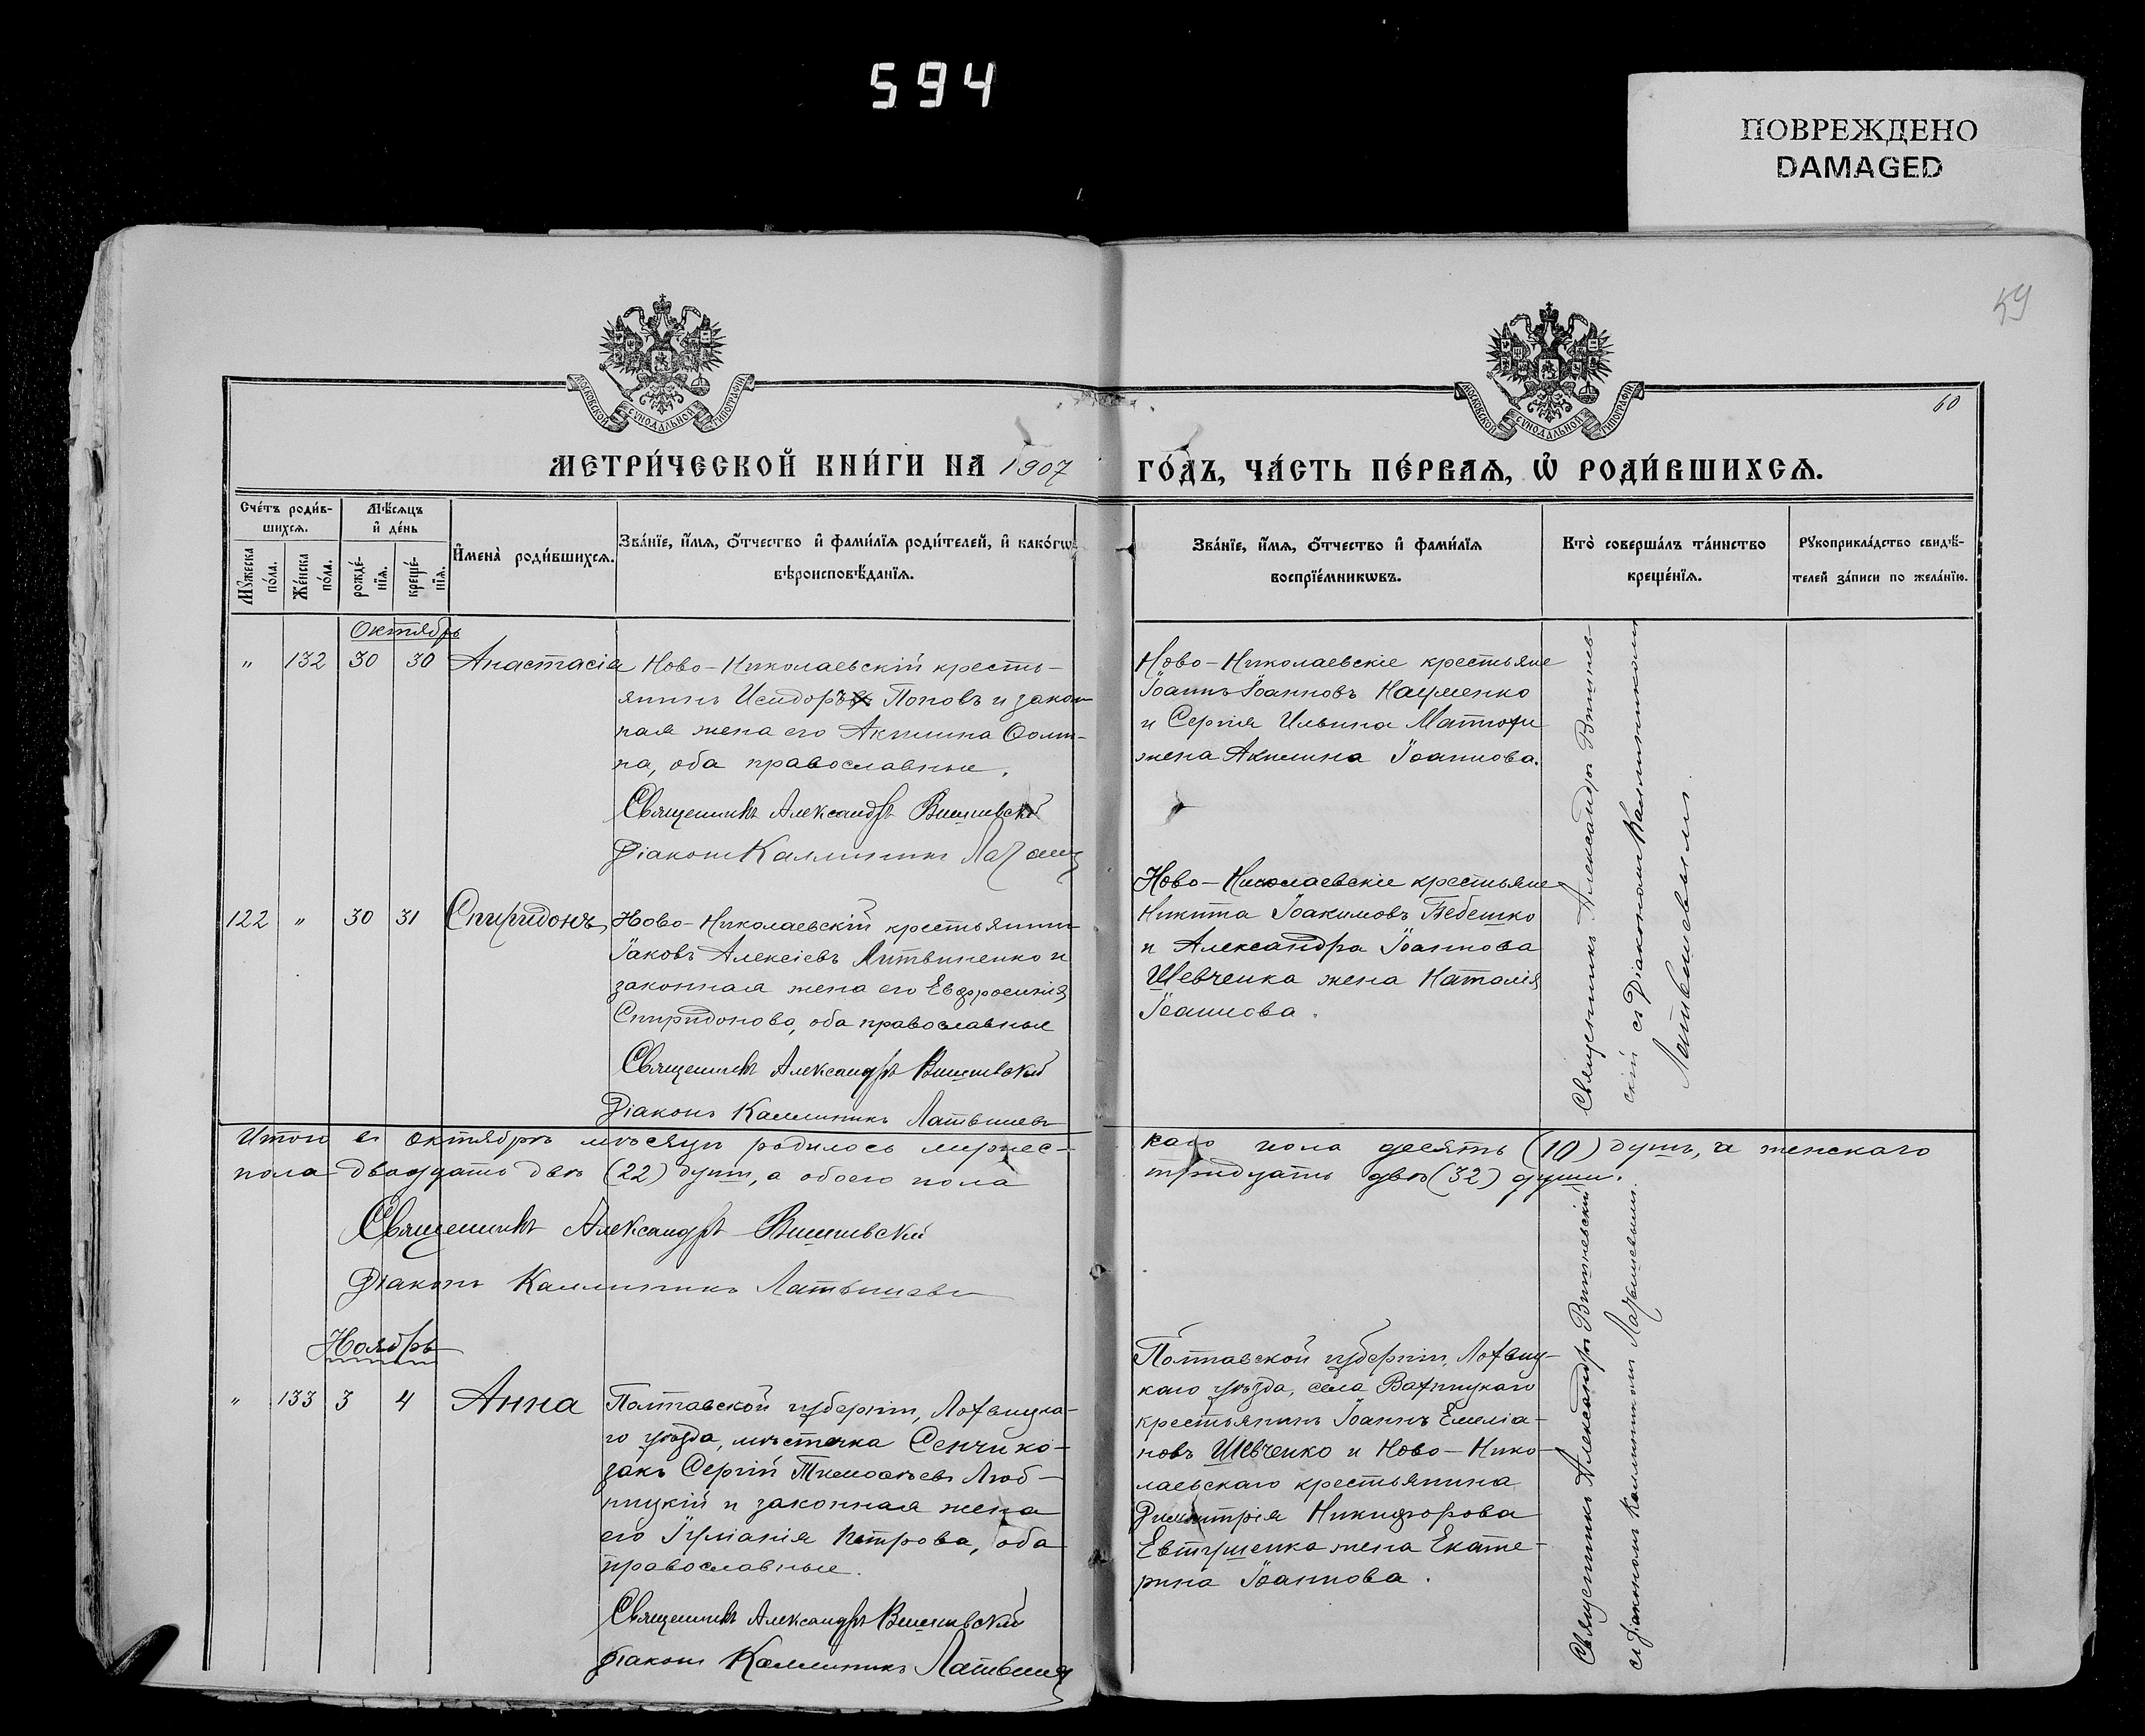 594
ПОВРЕЖДЕНО
DAMAGED
59
60
МОСКОВСКОЙ СѴНОДАЛЬНОЙ ТИПОГРАФІИ
МОСКОВСКОЙ СѴНОДАЛЬНОЙ ТИПОГРАФІИ
МЕТРИ́ЧЕСКОЙ КНИ́ГИ НА 1907 ГО́ДЪ, ЧА́СТЬ ПЕ́РВАѦ, Ѡ҆ РОДИ́ВШИХСѦ.
Сче́тъ роди́в-
шихсѧ.
Мѹ́жеска по́ла.
Же́нска по́ла.
Мѣ́сѧцъ
и҆ де́нь
рожде́-
нїѧ.
креще́-
нїѧ.
И҆мена̀ роди́вшихсѧ.
Зва́нїе, и҆́мѧ, ѻ҆́тчество и҆ фами́лїѧ роди́телей, и҆ како́гѡ
вѣроисповѣ́данїѧ.
Зва́нїе, и҆́мѧ, ѻ҆́тчество и҆ фами́лїѧ
воспрїе́мникѡвъ.
Кто̀ соверша́лъ та́инство
креще́нїѧ.
Рѹкоприкла́дство свидѣ́-
телей за́писи по жела́нїю.
Октябрь
" 132 30 30 Анастасія
Ново-Николаевскій кресть-
янинъ Исидоръ Поповъ и закон-
ная жена его Акилина
на, оба православные.
Священникъ Александръ Вишневскій
Діаконъ Каллиникъ
Ново-Николаевскіе крестьяне
Іоаннъ Іоанновъ Науменко
и Сергія Ильина
жена Акилина Іоаннова.
Священникъ Александръ Вишнев-
скій съ Діакономъ Каллиникомъ
Латышевымъ.
122 " 30 31 Спиридонъ
Ново-Николаевскій крестьянинъ
Іаковъ Алексіевъ Литвиненко и
законная жена его Евфросинія
Спиридонова, оба православные
Священникъ Александръ Вишневскій
Діаконъ Каллиникъ Латышевъ
Ново-Николаевскіе крестьяне
Никита Іоакимовъ Бебешко
и Александра Іоаннова
Шевченка жена Наталія
Іоаннова.
Итого въ октябрѣ мѣсяцѣ родилось мужес-
каго пола десять (10) душъ, а женскаго
пола двадцать двѣ (22) душъ, а обоего пола
тридцать двѣ (32) души.
Священникъ Александръ Вишневскій
Діаконъ Каллиникъ Латышевъ
Ноябрь
" 133 3 4 Анна
Полтавской губерніи, Лохвицка-
го уѣзда, мѣстечка Сенчи ко-
закъ Сергій Тимоѳеевъ Люб-
ницкій и законная жена
его Іуліанія Петрова, оба
православные.
Священникъ Александръ Вишневскій
Діаконъ Каллиникъ Латышевъ
Полтавской губерніи, Лохвиц-
каго уѣзда, села
крестьянинъ Іоаннъ Емеліа-
новъ Шевченко и Ново-Нико-
лаевскаго крестьянина
Димитрія Никифорова
Евтушенка жена Екате-
рина Іоаннова.
Священникъ Александръ Вишневскій
съ Діакономъ Каллиникомъ Латышевымъ.